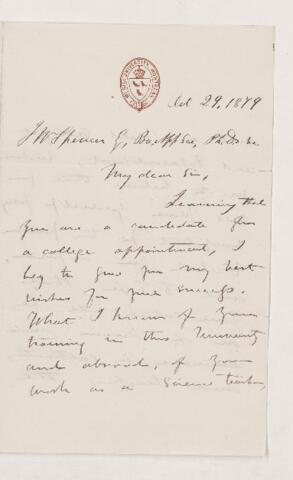 Oct 29, 1879
J W Spencer Esq, Ph.D. &c
My dear Sir,
Learning that
you are a candidate for
a college appointment, I
beg to give you my best
wishes for your success.
What I know of your
training in this University
and abroad, of your
work as a Science teacher,